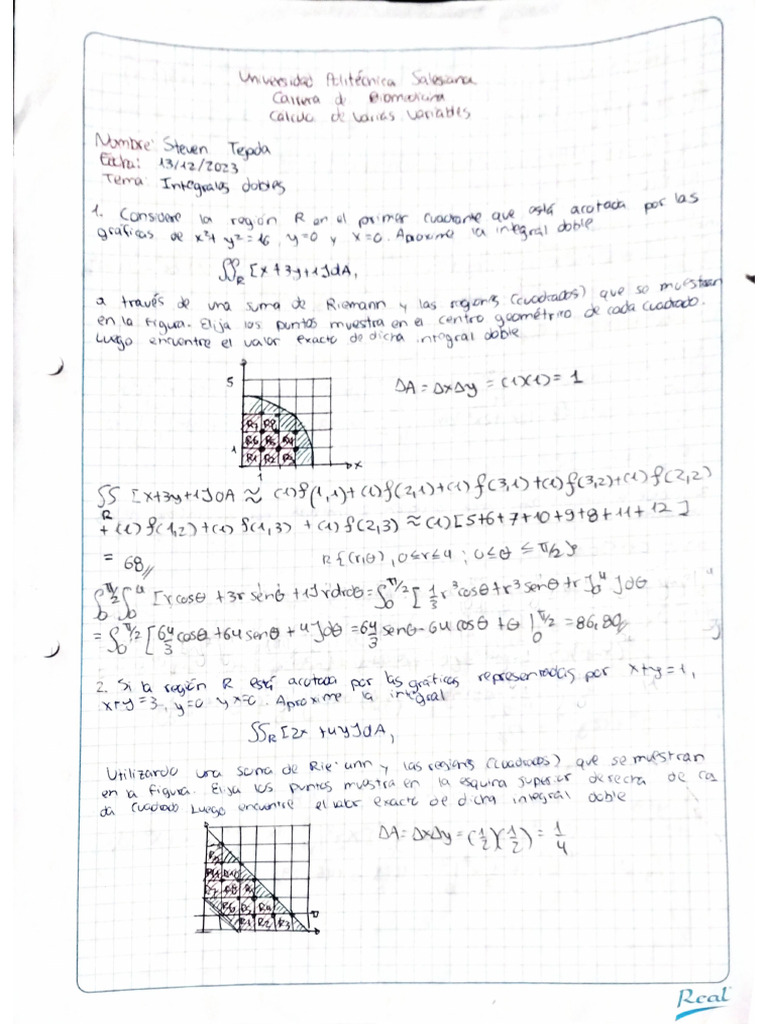 Universidad Politécnica Salesiana
Carrera de Biomedicina
Calculo de varias variables
Nombre: Steven Tejada
Fecha: 13/12/2023
Tema: Integrales dobles
1. Considere la región R en el primer cuadrante que está acotada por las
gráficas de x²+y²=16, y=0 y x=0. Aproxime la integral doble
∬_R [x+3y+1]dA,
a través de una suma de Riemann y las regiones (cuadrados) que se muestran
en la figura. Elija los puntos muestra en el centro geométrico de cada cuadrado.
Luego encuentre el valor exacto de dicha integral doble
5
ΔA = ΔxΔy = (1)(1) = 1
R7 R8
R6 R5 R4
1 R1 R2 R3
x
1
∬_R [x+3y+1]dA ≈ (1)f(1,1)+(1)f(2,1)+(1)f(3,1)+(1)f(3,2)+(1)f(2,2)
+(1)f(1,2)+(1)f(1,3)+(1)f(2,3) ≈ (1)[5+6+7+10+9+8+11+12]
= 68// R{(r,θ), 0≤r≤4; 0≤θ≤π/2}
∫_0^{π/2}∫_0^4 [r cosθ + 3r senθ + 1]r dr dθ = ∫_0^{π/2} [1/3 r³cosθ+r³senθ+r]_0^4]dθ
= ∫_0^{π/2} [64/3 cosθ+64senθ+4]dθ = 64/3 senθ-64cosθ+θ |_0^{π/2} = 86,80//
2. Si la región R está acotada por las gráficas representadas por x+y=1,
x+y=3, y=0 y x=0. Aproxime la integral
∬_R [2x+4y]dA,
Utilizando una suma de Rie ann y las regiones (cuadrados) que se muestran
en la figura. Elija los puntos muestra en la esquina superior derecha de ca
da cuadrado Luego encuentre el valor exacto de dicha integral doble
ΔA = ΔxΔy = (1/2)(1/2) = 1/4
R8 R9
R6 R5 R4
R1 R2 R3
Real